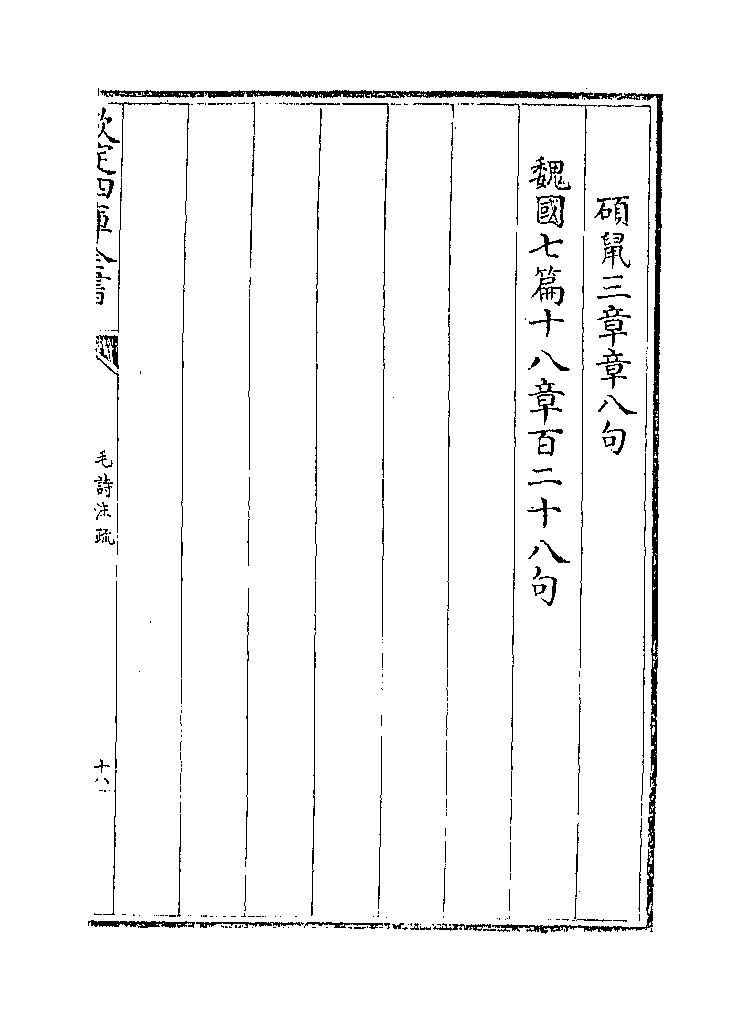 碩鼠三章章八句
魏國七篇十八章百二十八句
欽定四庫全書
毛詩注疏
十八